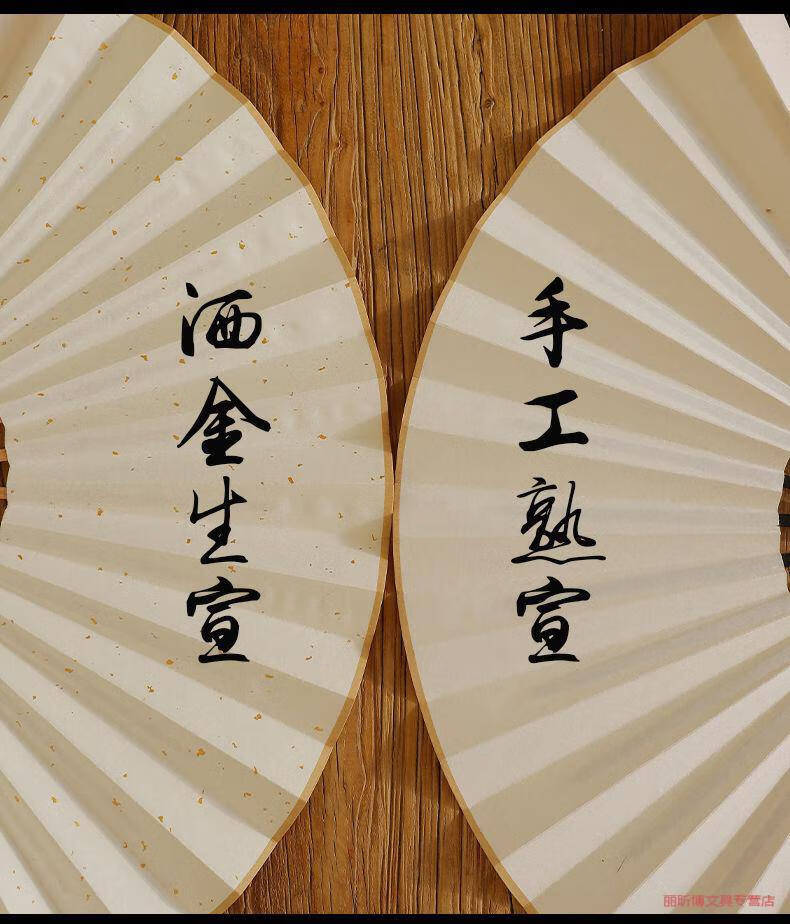 洒金生宣
手工熟宣
丽昕博文具专营店